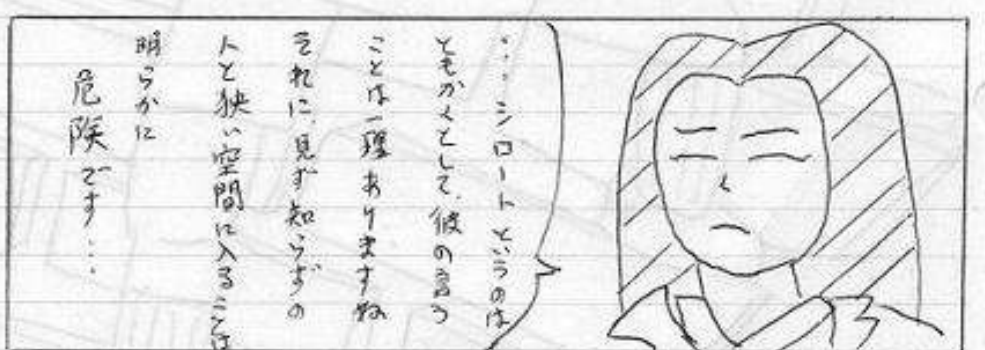 ・・・シロートというのは
ともかくとして、彼の言う
ことは一理ありますね
それに、見ず知らずの
人と狭い空間に入ることは
明らかに
危険です・・・